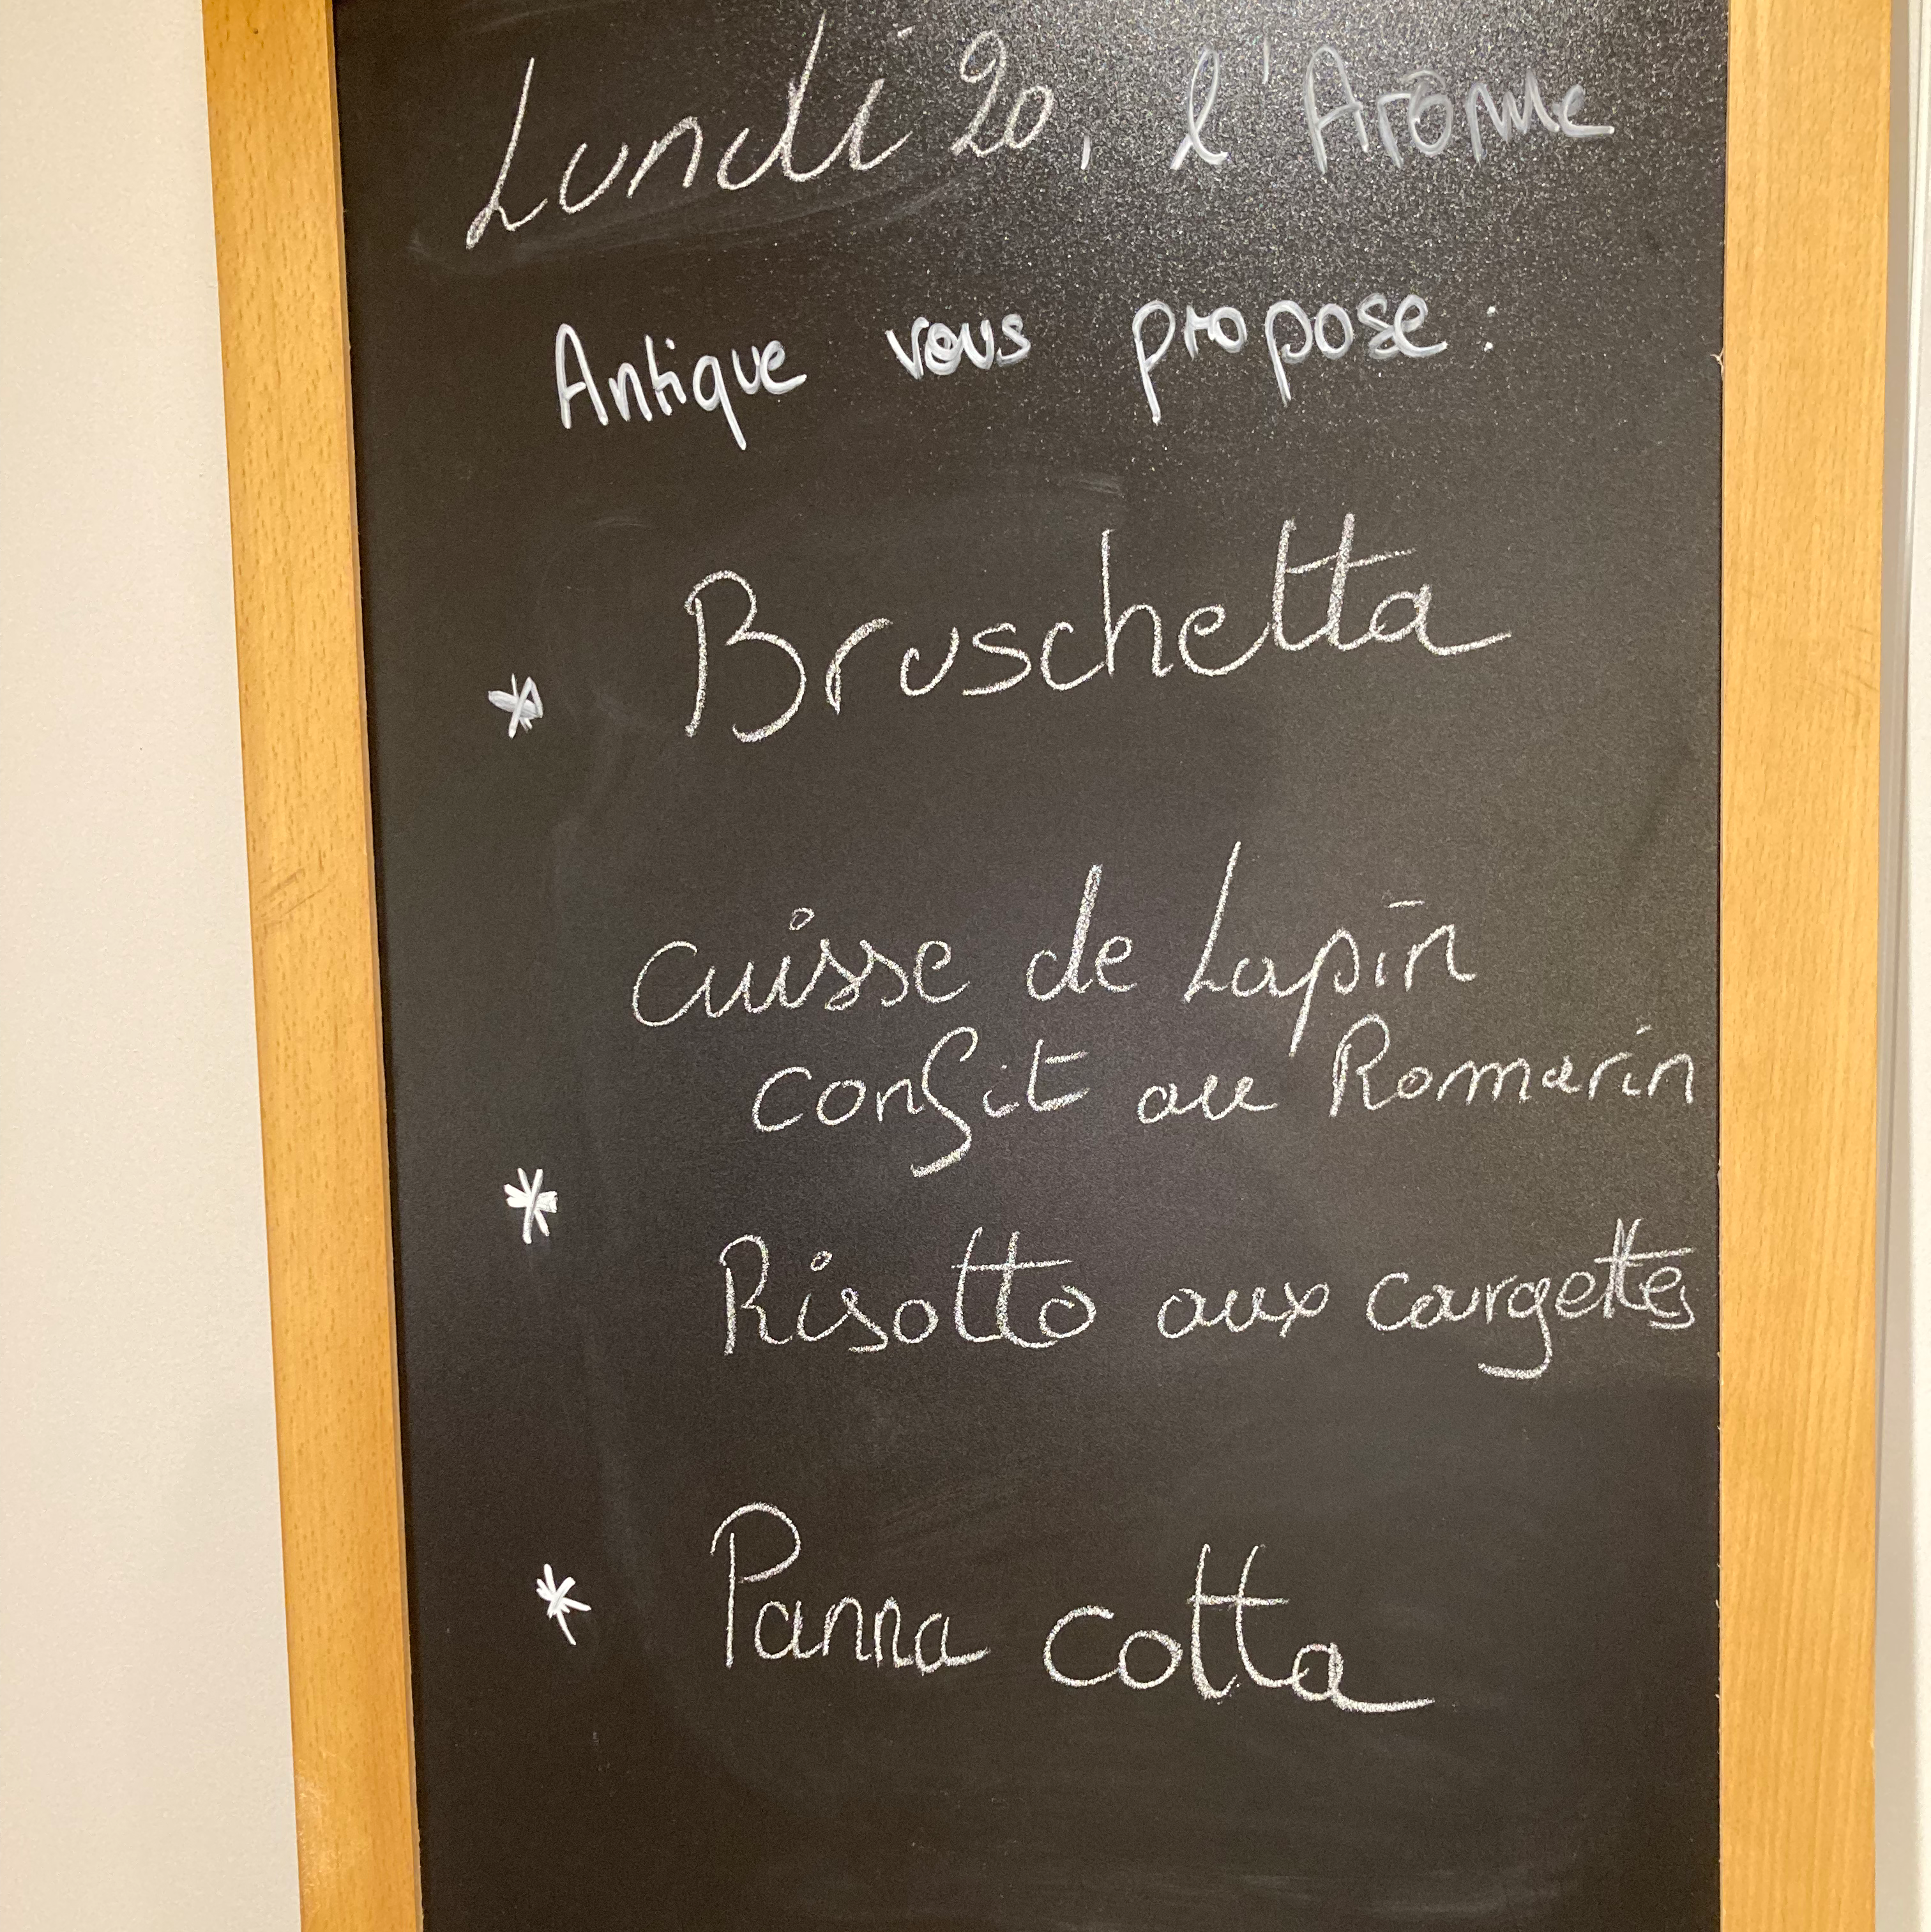 Lundi 20, l'Arôme
Antique vous propose :
* Bruschetta
cuisse de Lapin
confit au Romarin
*
Risotto aux courgettes
* Panna cotta